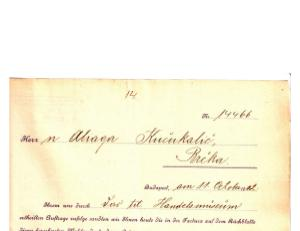 14
Nr. 14466
Herrn Abraga Kučukalić,
Brčka.
Budapest, am 11. October
Ihrem uns durch Das kk. Handelsmuseum
ertheilten Auftrage zufolge sandten wir Ihnen heute die in der Factura auf dem Rückblatte